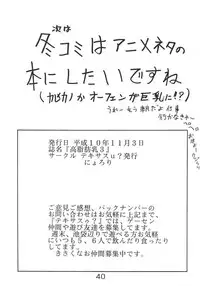 次は
冬コミはアニメネタの
本にしたいですね
(カルカノかオーフェンが巨乳に!?)
うわーもう朝だよ仕事
行かなきゃー
発行日 平成10年11月3日
誌名『高脂肪乳3』
サークル テキサスu?発行
にょろり
ご意見ご感想、バックナンバーの
お問い合わせはお気軽に上記まで、
『テキサスゥ?』では、ゲーセン
仲間や遊び友達を募集してます。
週末、池袋辺りで遊べる方お気軽
にいつも5、6人で飲んだり食ったり
してます。
きさくなお仲間募集中です。
40